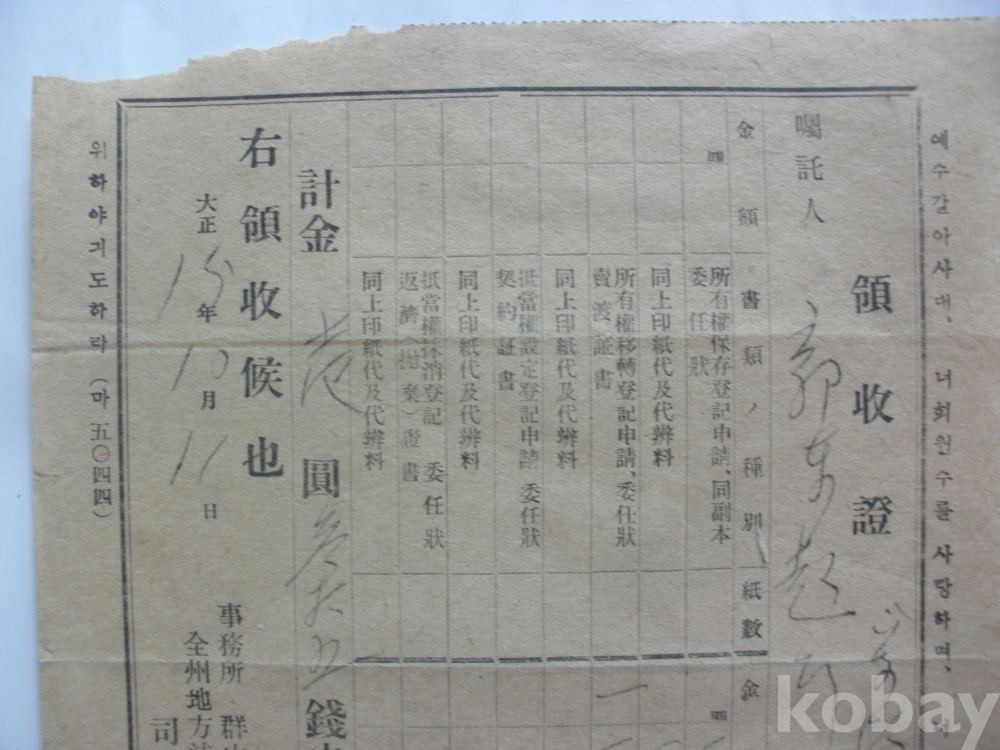 예수갈아사대、너희원수를 사랑하며、
領收證
囑託人
金額 書類ノ種別 紙數 金
所有權保存登記申請、同副本
委任狀
同上印紙代及代辨料
所有權移轉登記申請、委任狀
賣渡証書
同上印紙代及代辨料
抵當權設定登記申請、委任狀
契約証書
同上印紙代及代辨料
抵當權抹消登記 委任狀
返濟(抛棄)證書
同上印紙代及代辨料
計金 圓 五 錢
右領收候也
大正15年10月11日
事務所 群
全州地方
司
위하야긔도하라(마五〇四四)
kobay